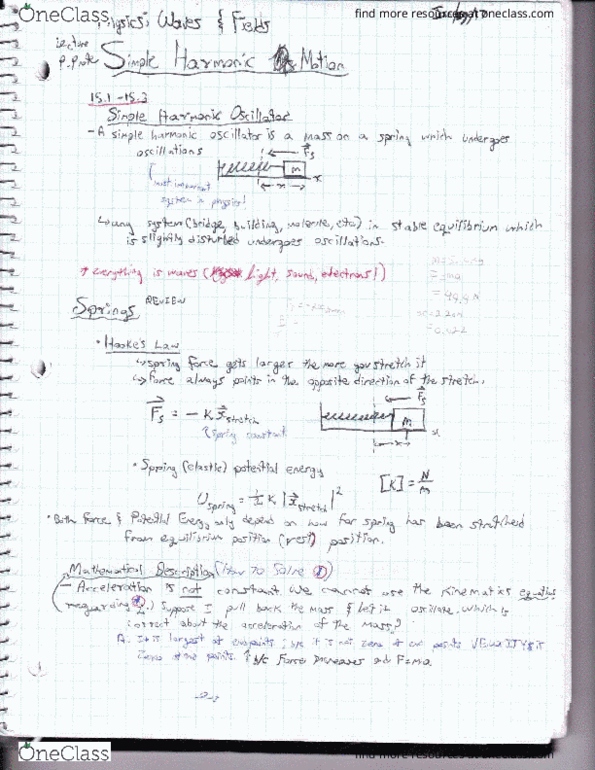 OneClass
find more resources at oneclass.com
Physics: Waves & Fields
lecture
Simple Harmonic Motion
15.1-15.3
Simple Harmonic Oscillator
- A simple harmonic oscillator is a mass on a spring which undergoes
oscillations
Fs
m
x
x
most important
system in physics!
↳ any system (bridge, building, molecule, etc.) in stable equilibrium which
is slightly disturbed undergoes oscillations.
↑ everything is waves (light, sound, electrons!)
Springs REVIEW
• Hooke's Law
↳ spring force gets larger the more you stretch it
↳ force always points in the opposite direction of the stretch.
Fs = -k x stretch
spring constant
Fs
m
x
x
• Spring (elastic) potential energy
[K] = N/m
U spring = 1/2 k |x stretch|²
• Both Force & Potential Energy only depend on how far spring has been stretched
from equilibrium position (rest) position.
Mathematical Description (How to Solve
- Acceleration is not constant. We cannot use the kinematics equations
regarding Suppose I pull back the mass & let it oscillate. Which is
correct about the acceleration of the mass?
A: It is largest at endpoints; b/c it is not zero at
zero at the points. ↑ b/c Force increases and F=ma.
OneClass
find more resources at oneclass.com